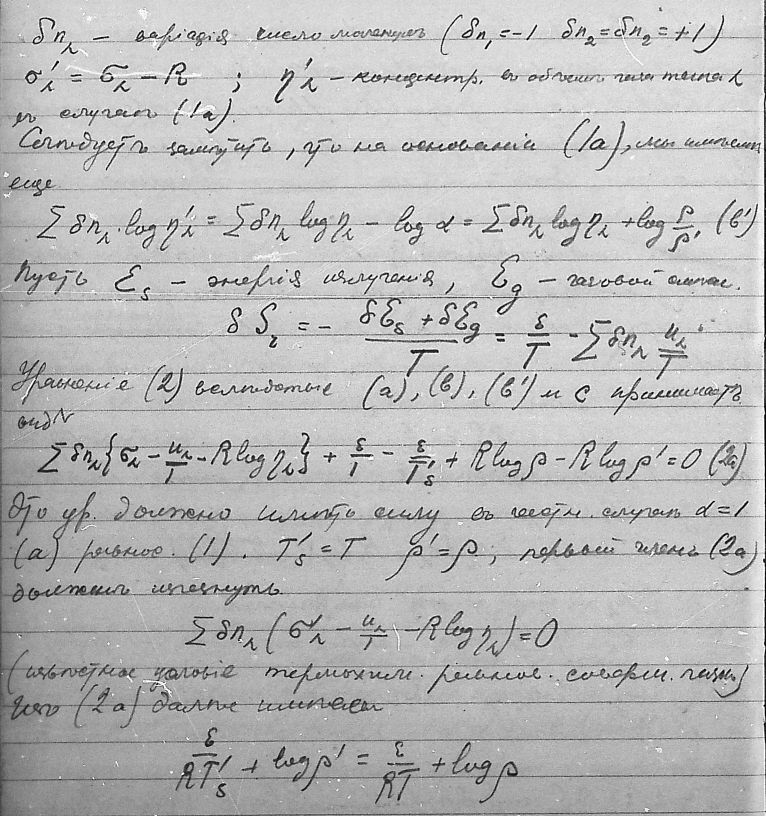 δn_λ — варіація число молекулъ (δn₁=-1 δn₂=δn₂=+1)
σ'_λ = σ_λ - R ; η'_λ - концентр. въ объемѣ газа типа λ
въ случаѣ (1a).
Слѣдуетъ замѣтить, что на основаніи (1a), мы имѣемъ
еще
∑δn_λ·log η'_λ = ∑δn_λ log η_λ - log α = ∑δn_λ log η_λ + log ρ/ρ' (b')
Пусть Ɛ_s — энергія излученія, Ɛ_g — газовой
δS_λ = - (δƐ_s + δƐ_g)/T = ε/T - ∑δn_λ u_λ/T
Уравненіе (2) (a), (b), (b') и c принимаетъ
видъ
∑δn_λ{σ_λ - u_λ/T - R log η_λ} + ε/T - ε/T'_s + R log ρ - R log ρ' = 0 (2a)
Это ур. должно имѣть силу въ частн. случаѣ α=1
(a) равнос. (1). T'_s = T ρ' = ρ; первый членъ (2a)
долженъ изчезнуть
∑δn_λ(σ_λ - u_λ/T - R log η_λ) = 0
(извѣстное условіе термохим. равнов. соверш. газовъ)
Изъ (2a) далѣе имѣемъ
ε/RT'_s + log ρ' = ε/RT + log ρ